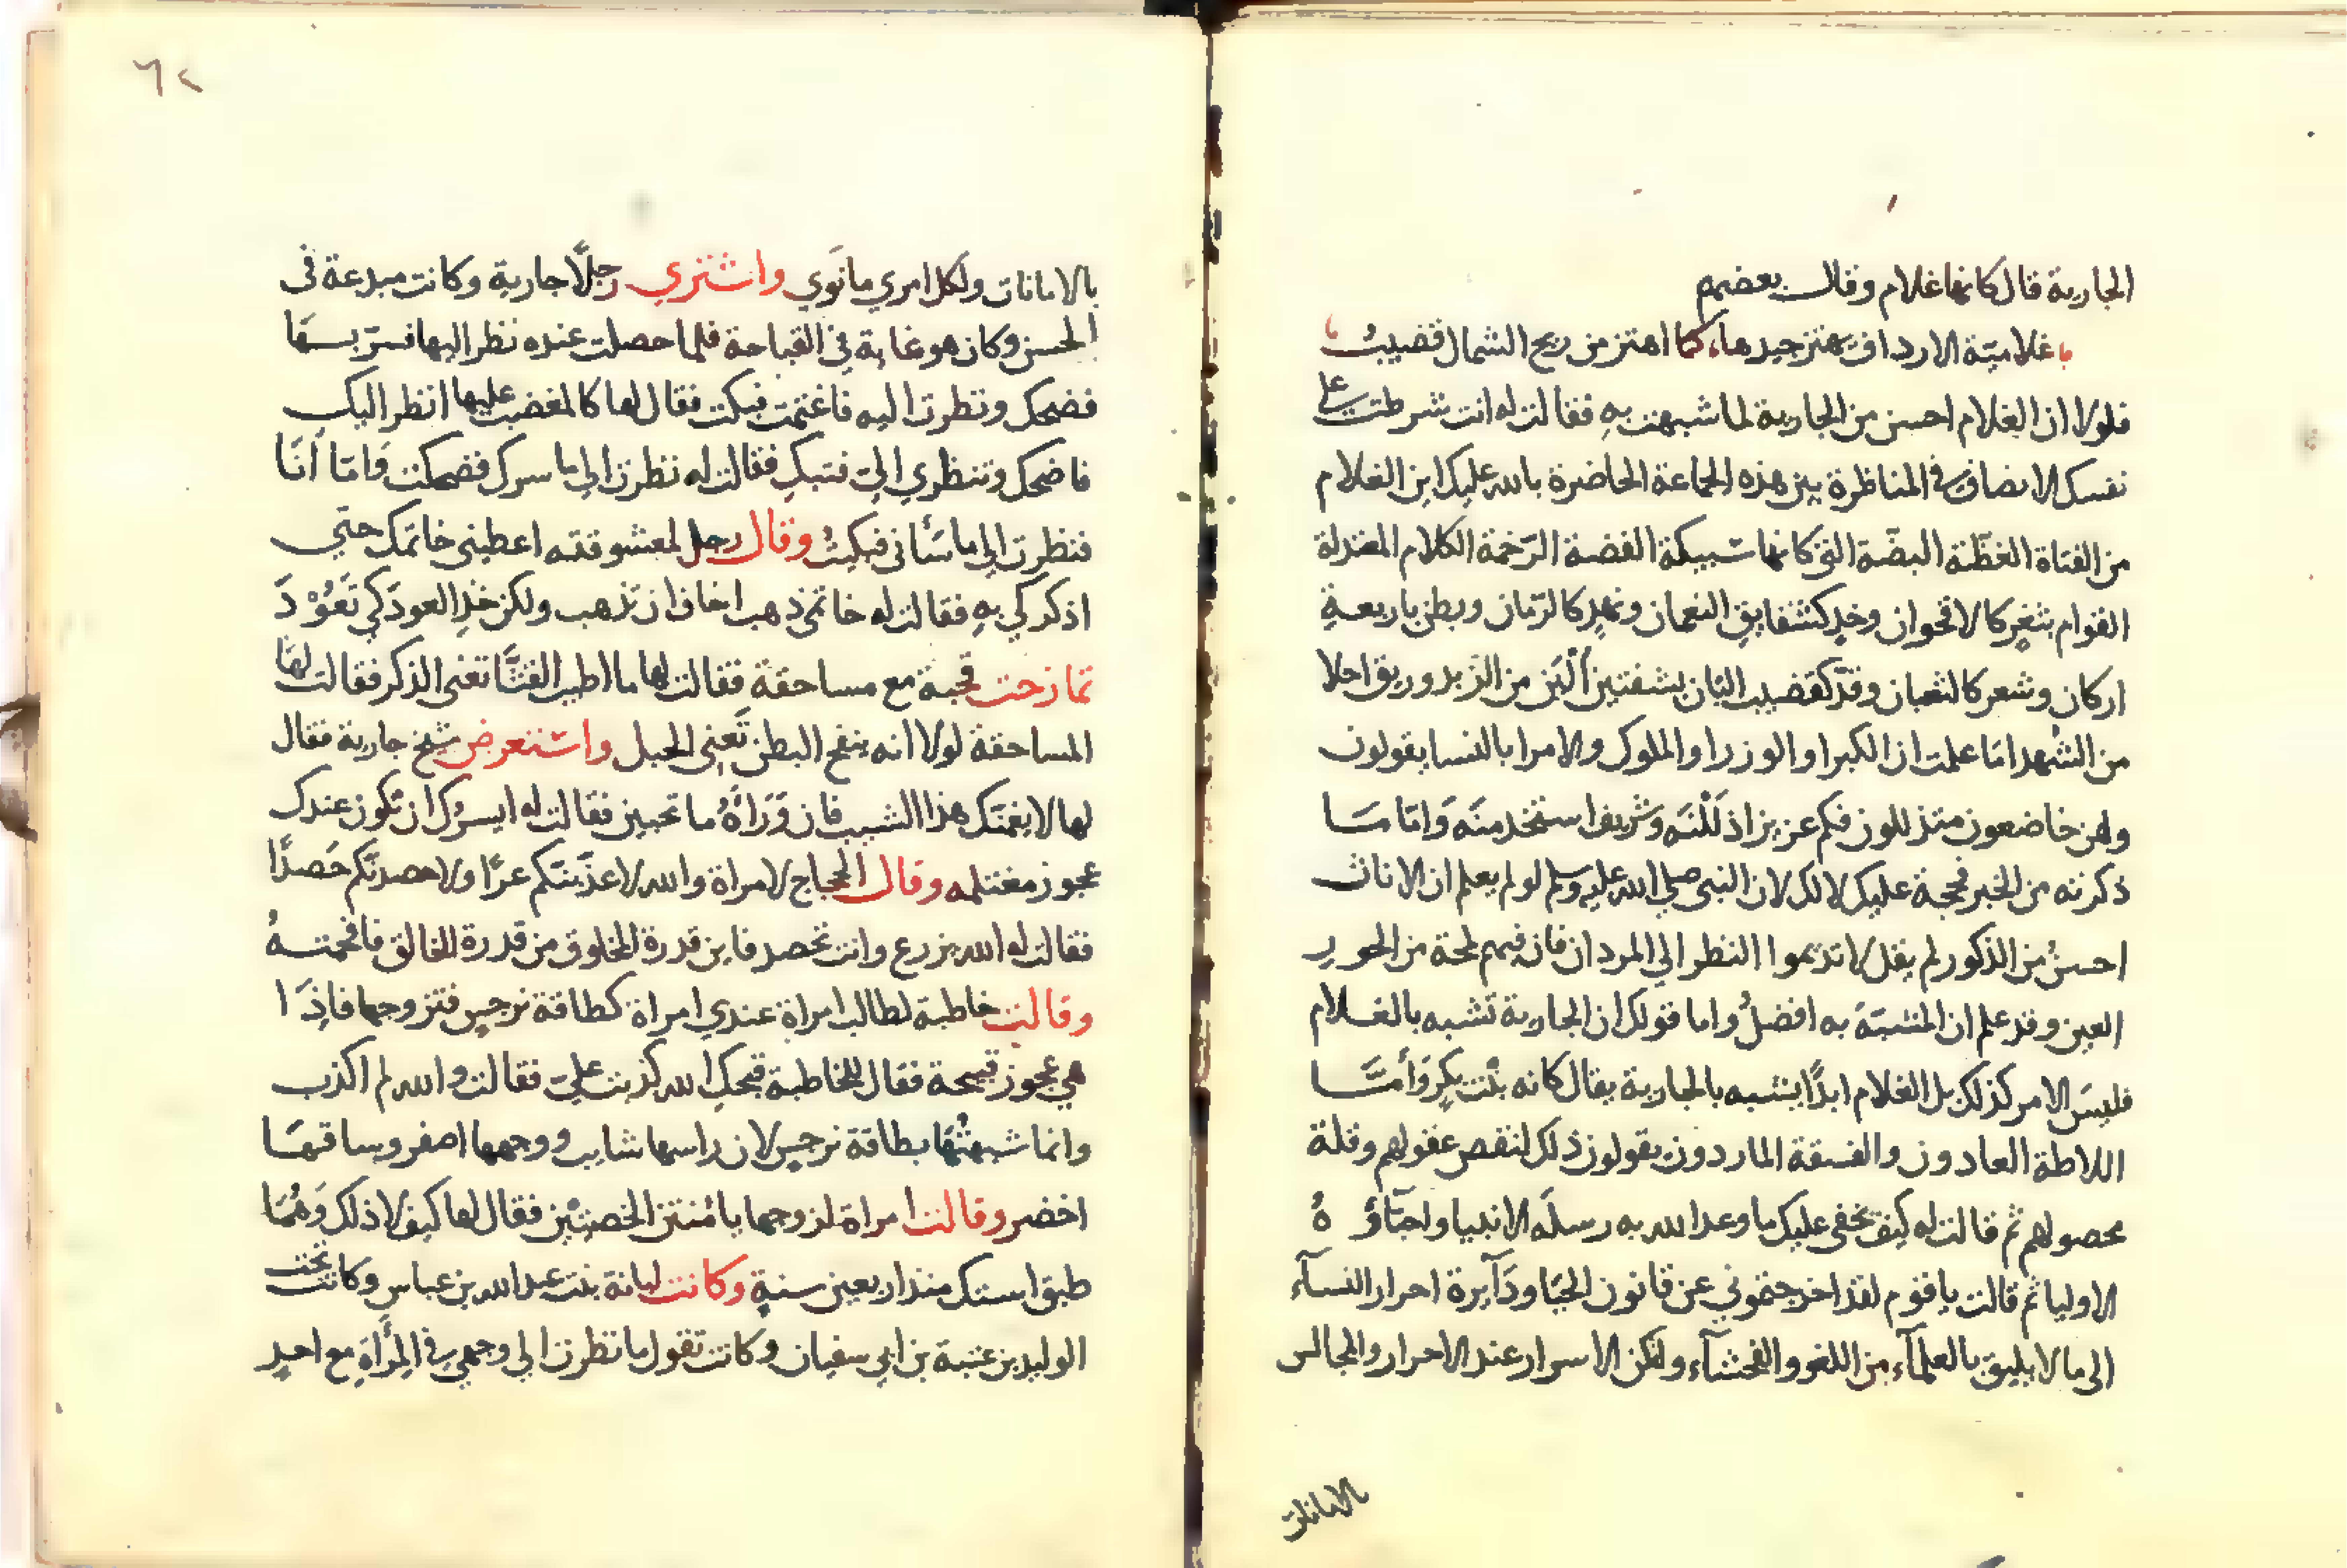 الجارية قال كانها غلام وقال بعضهم
غلامية الارداف يهتز جيدها كما اهتز من ريح الشمال قضيب
فلولا ان الغلام احسن من الجارية لما شبهت به فقالت له انت شرطت على
نفسك الانصاف في المناظرة بين هذه الجماعة الحاضرة بالله عليك اين الغلام
من الفتاة الغظّة البضّة التي كانها سبيكة الفضة الرّخمة الكلام المعتدلة
القوام بثغرٍ كالاقحوان وخدٍ كشقايق النعمان ونهدٍ كالرّمان وبطن باربعةِ
اركان وشعر كالثعبان وقدّ كقضيب البان بشفتين أَلْيَن من الزبد وريق احلا
من الشهد اما علمت ان الكبرا والوزرا والملوك والامرا بالنسا يقولون
ولهن خاضعون متذللون فكم عزيز اذلَلْنَه وشريف استخدمنَه وَامّا مَا
ذكرته من الخبر فحجة عليك لا لك لان النبي صلي الله عليه وسلم لو لم يعلم ان الاناث
احسنُ من الذكور لم يقل لا تديموا النظر الي المردان فان فيهم لمحة من الحور
العين وقد علم ان المشبّهَ به افضلُ واما قولك ان الجارية تشبه بالغلام
فليسَ الامر كذلك بل الغلام ابدًا يشبه بالجارية يقال كانه بنْت بكرٍ وَأمّا
اللاطة العادون والفسقة الماردون يقولون ذلك لنقص عقولهم وقلة
محصولهم ثم قالت له كيف تخفى عليك ما وعد الله به رسله الانبيا واحبّاؤهُ
الاوليا ثم قالت يا قوم لقد اخرجتموني عن قانون الحَيَا ودَآيرة احرار النسآء
الى ما لا يليق بالعلمآء من اللغو والفحشآء ولكن الاسرار عند الاحرار والمجالس
بالامانات
٦٢
بالامانات ولكل امري ما نَوَي واشتري رجلًا جارية وكانت مبدعة فى
الحسن وكان هو غاية في القباحة فلما حصلت عنده نظر اليها فسرّ بها
فضحك ونظرت اليه فاغتمت فبكت فقال لها كالمغضب عليها انظر اليكِ
فاضحك وتنظري اليّ فتبكِ فقالت له نظرت الي ما سرك فضحكت وَامّا أنَا
فنظرت الي ما سَأَنى فبكيتُ وقال رجل لمعشوقته اعطيني خاتمك حتّي
اذكركي به فقالت له خاتمي ذهب اخاف ان تذهب ولكن خذِ العودَ كي تَعُوْدَ
تمازحت قحبة مع مساحقة فقالت لها ما اطيب القثَّا تعني الذكر فقالت لها
المساحقة لولا انه ينفخ البطن تَعني الحبل واستعرض شيخ جارية فقال
لها لا يغمّنك هذا الشيب فان وَرَاهُ ما تحبين فقالت له ايسرُك ان تكون عندك
عجوز مغتلمه وقال الحجاج لامراة والله لاعدّنّكم عدًّا ولاحصدنّكم حَصدًا
فقالت له الله يزرع وانت تحصد فاين قدرة المخلوق من قدرة الخالق فافحمتهُ
وقالت خاطبة لطالب امراة عندي امراة كطاقة نرجسٍ فتزوجها فاذَا
هي عجوز قبيحة فقال للخاطبة قبّحكِ الله كذبت عليّ فقالت والله لم اكذب
وانما شبهتُها بطاقة نرجس لان راسها شايب ووجهها اصفر وساقها
اخضر وقالت امراة لزوجها يا مُنتن الخصيتين فقال لها كيف لا ذلك وَهُما
طبق استك منذ اربعين سنةٍ وكانت لبانة بنت عبد الله بن عباس وكانت تحت
الوليد بن عتبة بن ابي سفيان وكانت تقول ما نظرت الي وجهي في المِرأةِ مع احدٍ